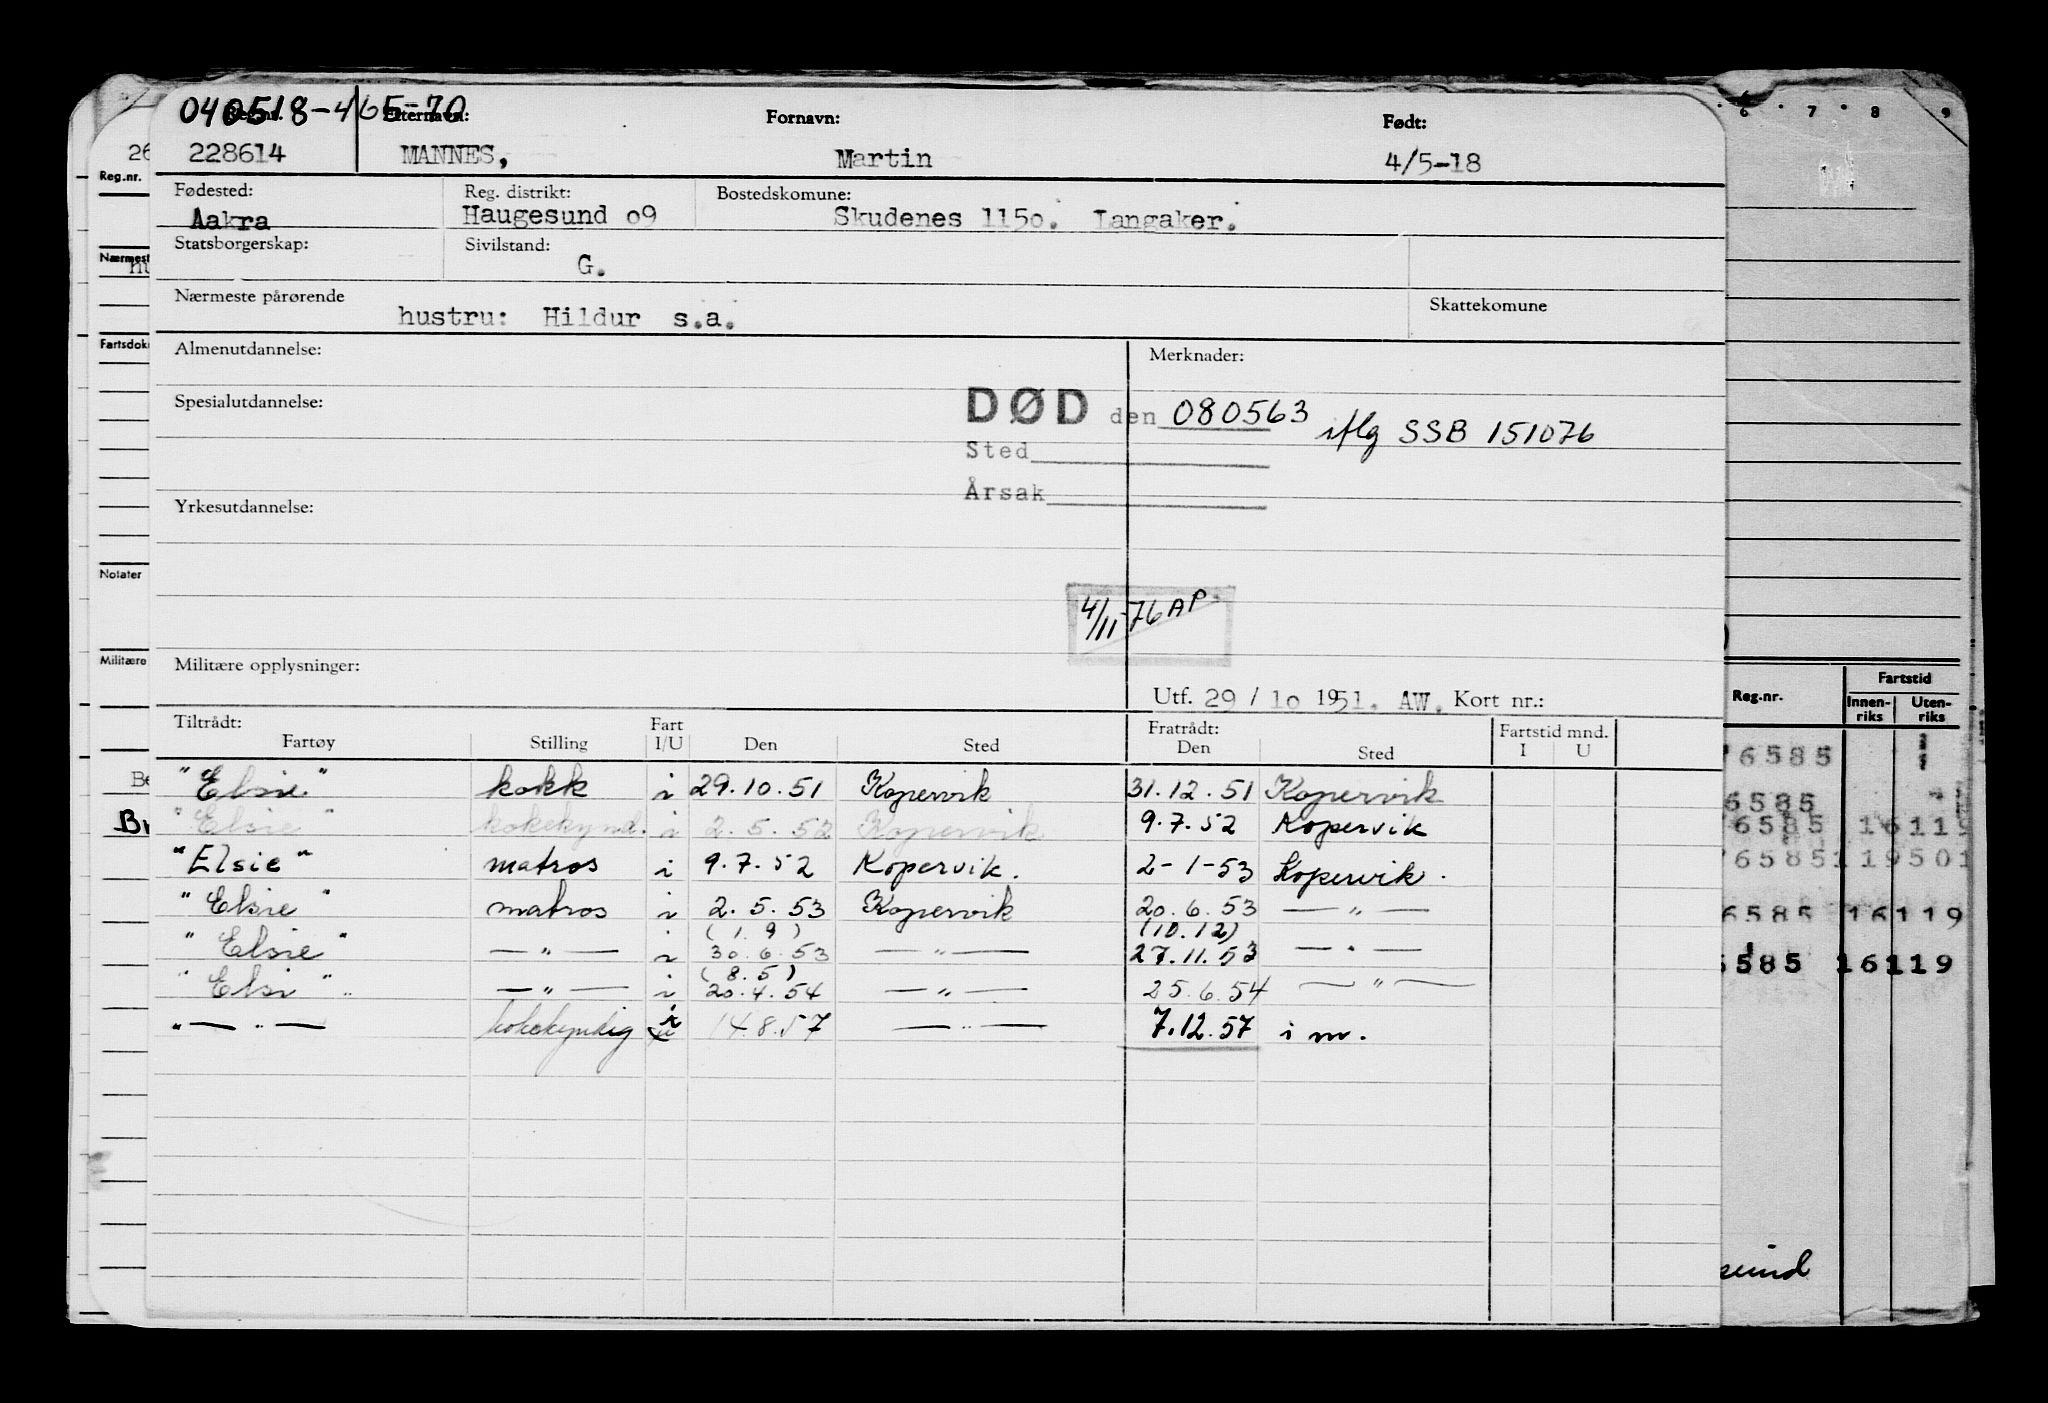 040518-46570
Reg.nr. Etternavn: Fornavn: Født:
228614 MANNES, Martin 4/5-18
Fødested: Reg. distrikt: Bostedskomune:
Aakra Haugesund o9 Skudenes 115o. Langaker.
Statsborgerskap: Sivilstand:
G.
Nærmeste pårørende Skattekomune
hustru: Hildur s.a.
Almenutdannelse: Merknader:
Spesialutdannelse:
DØD den 080563 iflg SSB 151076
Sted
Årsak
Yrkesutdannelse:
4/11-76 AP
Militære opplysninger:
Utf. 29 / 1o 1951. AW. Kort nr.:
Tiltrådt: Fart Fratrådt: Fartstid mnd.
Fartøy Stilling I/U Den Sted Den Sted I U
"Elsie" kokk i 29.10.51 Kopervik 31.12.51 Kopervik
"Elsie" kokekynd. i 2.5.52 Kopervik 9.7.52 Kopervik
"Elsie" matros i 9.7.52 Kopervik. 2-1-53 Kopervik.
"Elsie" matros i 2.5.53 Kopervik 20.6.53 — " —
i (1.9) (10.12)
"Elsie" — " — i 30.6.53 — " — 27.11.53 — " —
(8.5)
"Elsi" — " — i 20.4.54 — " — 25.6.54 — " —
" — " — kokekyndig i 14.8.57 — " — 7.12.57 i m.
26
Reg.nr.
Nærmest
hu
Fartsdok
Notater
Militære
Be
Br
6 7 8 9
Reg.nr. Fartstid
Innen-riks Uten-riks
76585
6585
76585 16119
76585 119501
6585 16119
6585 16119
sund